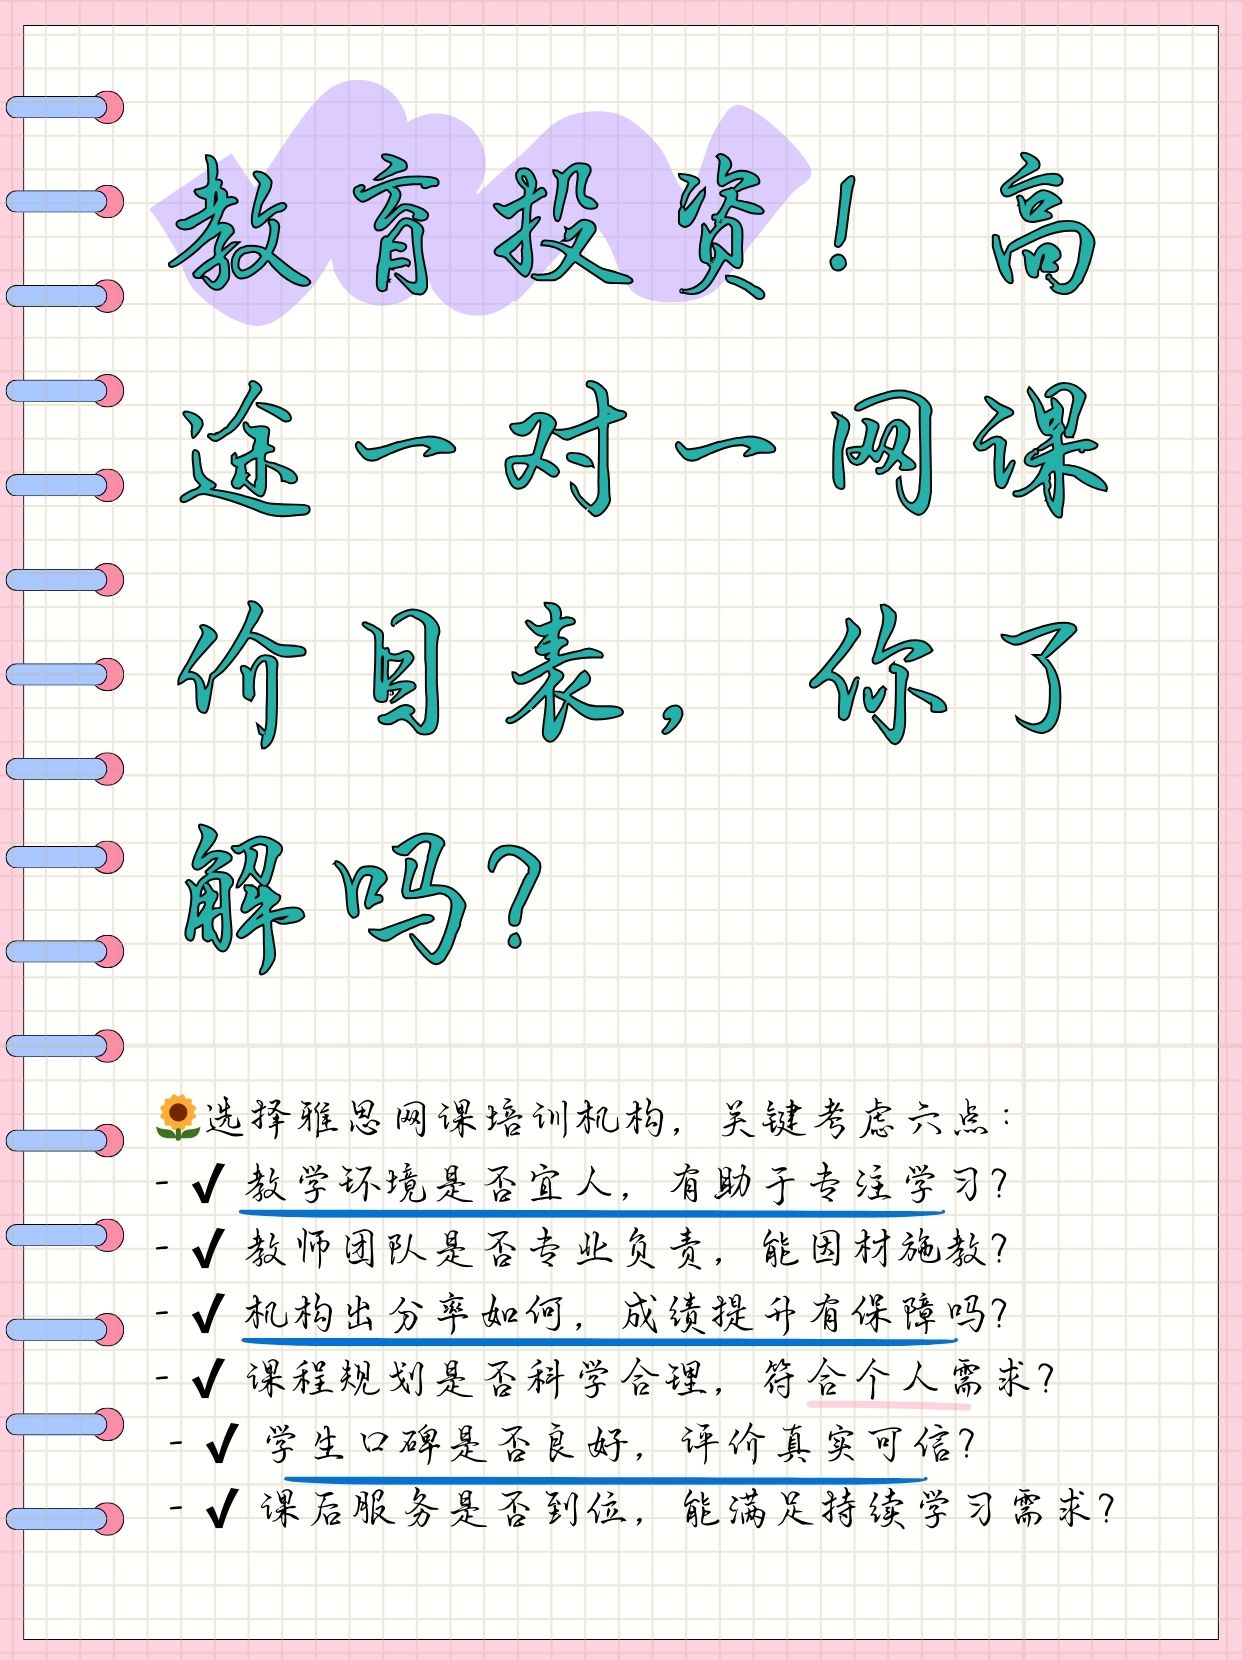 教育投资！高
途一对一网课
价目表，你了
解吗？
🌻选择雅思网课培训机构，关键考虑六点：
- ✔ 教学环境是否宜人，有助于专注学习？
- ✔ 教师团队是否专业负责，能因材施教？
- ✔ 机构出分率如何，成绩提升有保障吗？
- ✔ 课程规划是否科学合理，符合个人需求？
- ✔ 学生口碑是否良好，评价真实可信？
- ✔ 课后服务是否到位，能满足持续学习需求？